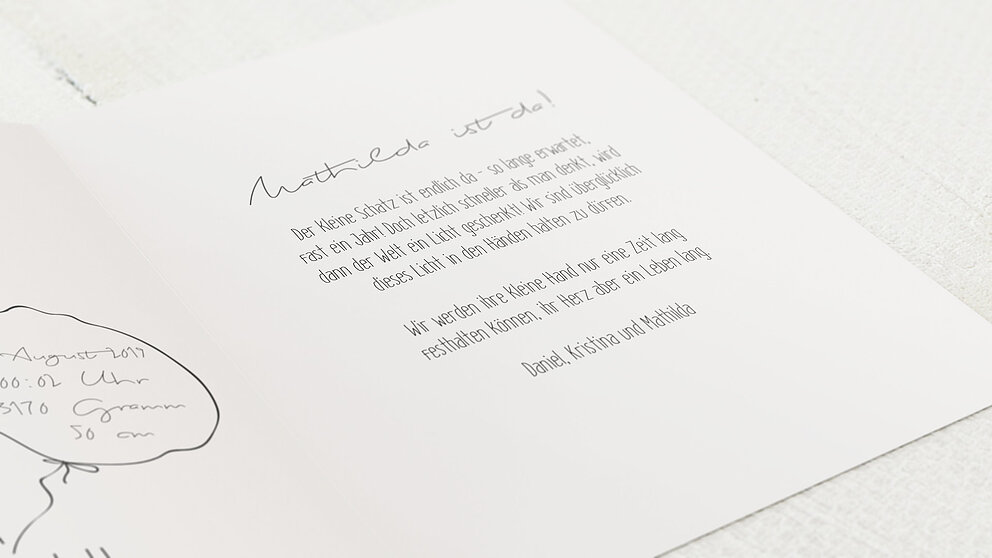 August 2019
00:02 Uhr
3170 Gramm
50 cm
Mathilda ist da!
Der kleine Schatz ist endlich da - so lange erwartet,
fast ein Jahr! Doch letzlich schneller als man denkt, wird
dann der Welt ein Licht geschenkt! Wir sind überglücklich
dieses Licht in den Händen halten zu dürfen.
Wir werden ihre kleine Hand nur eine Zeit lang
festhalten können, ihr Herz aber ein Leben lang
Daniel, Kristina und Mathilda